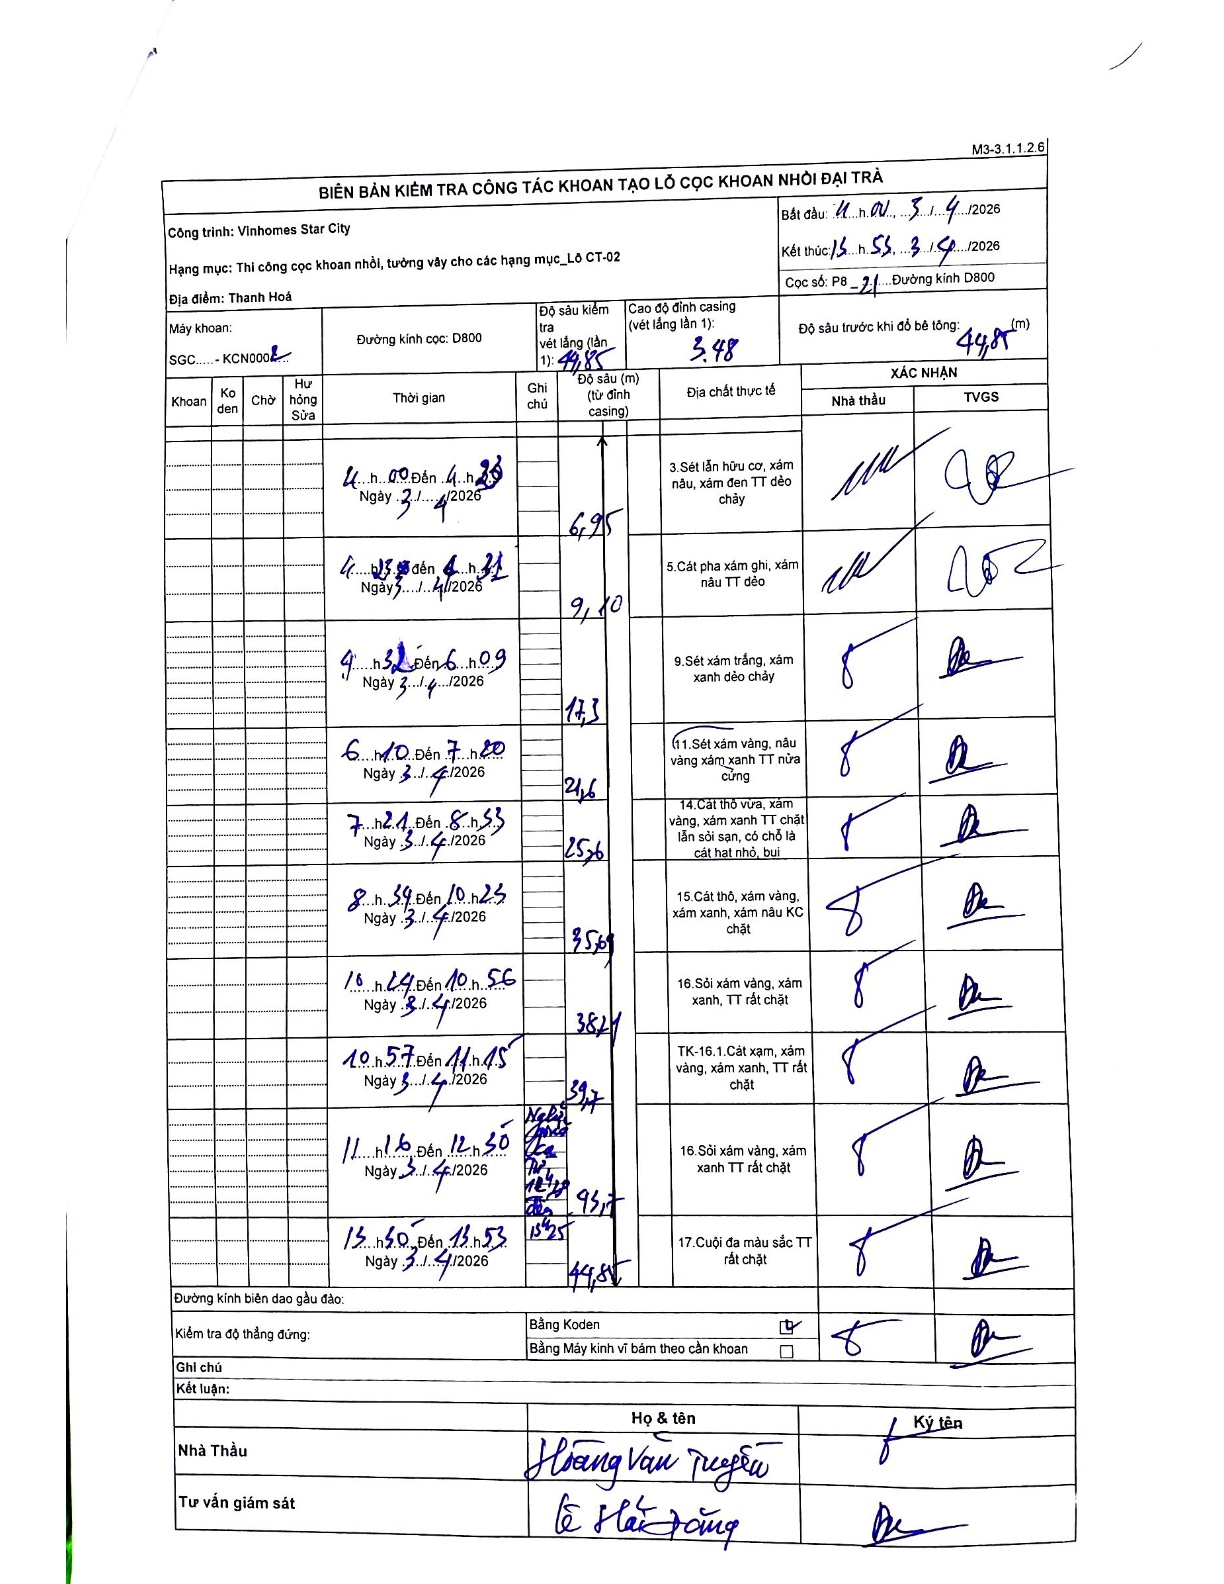 M3-3.1.1.2.6
BIÊN BẢN KIỂM TRA CÔNG TÁC KHOAN TẠO LỖ CỌC KHOAN NHỒI ĐẠI TRÀ
Công trình: Vinhomes Star City
Hạng mục: Thi công cọc khoan nhồi, tường vây cho các hạng mục_Lô CT-02
Địa điểm: Thanh Hoá
Bắt đầu: 4 h 00, 3/4/2026
Kết thúc: 13 h 53, 3/4/2026
Cọc số: P8_21 Đường kính D800
Máy khoan:
SGC..... - KCN0002
Đường kính cọc: D800
Độ sâu kiểm
tra
vét lắng (lần
1): 44,85
Cao độ đỉnh casing
(vét lắng lần 1):
3.48
Độ sâu trước khi đổ bê tông: 44,85 (m)
Khoan
Ko
den
Chờ
Hư
hỏng
Sửa
Thời gian
Ghi
chú
Độ sâu (m)
(từ đỉnh
casing)
Địa chất thực tế
XÁC NHẬN
Nhà thầu
TVGS
4 h 00 Đến 4 h 23
Ngày 3/4/2026
6,95
3.Sét lẫn hữu cơ, xám
nâu, xám đen TT dẻo
chảy
4 h đến 4 h 31
Ngày 3/4/2026
9,10
5.Cát pha xám ghi, xám
nâu TT dẻo
4 h 32 Đến 6 h 09
Ngày 3/4/2026
17,3
9.Sét xám trắng, xám
xanh dẻo chảy
6 h 10 Đến 7 h 20
Ngày 3/4/2026
21,6
11.Sét xám vàng, nâu
vàng xám xanh TT nửa
cứng
7 h 21 Đến 8 h 33
Ngày 3/4/2026
25,6
14.Cát thô vừa, xám
vàng, xám xanh TT chặt
lẫn sỏi sạn, có chỗ là
cát hạt nhỏ, bụi
8 h 34 Đến 10 h 23
Ngày 3/4/2026
35,6
15.Cát thô, xám vàng,
xám xanh, xám nâu KC
chặt
10 h 24 Đến 10 h 56
Ngày 3/4/2026
38,1
16.Sỏi xám vàng, xám
xanh, TT rất chặt
10 h 57 Đến 11 h 15
Ngày 3/4/2026
39,7
TK-16.1.Cát xạm, xám
vàng, xám xanh, TT rất
chặt
11 h 16 Đến 12 h 30
Ngày 3/4/2026
43,7
16.Sỏi xám vàng, xám
xanh TT rất chặt
13 h 30 Đến 13 h 53
Ngày 3/4/2026
44,85
17.Cuội đa màu sắc TT
rất chặt
Đường kính biên dao gầu đào:
Kiểm tra độ thẳng đứng:
Bằng Koden
Bằng Máy kinh vĩ bám theo cần khoan
Ghi chú
Kết luận:
Họ & tên
Ký tên
Nhà Thầu
Hoàng Văn Tuyến
Tư vấn giám sát